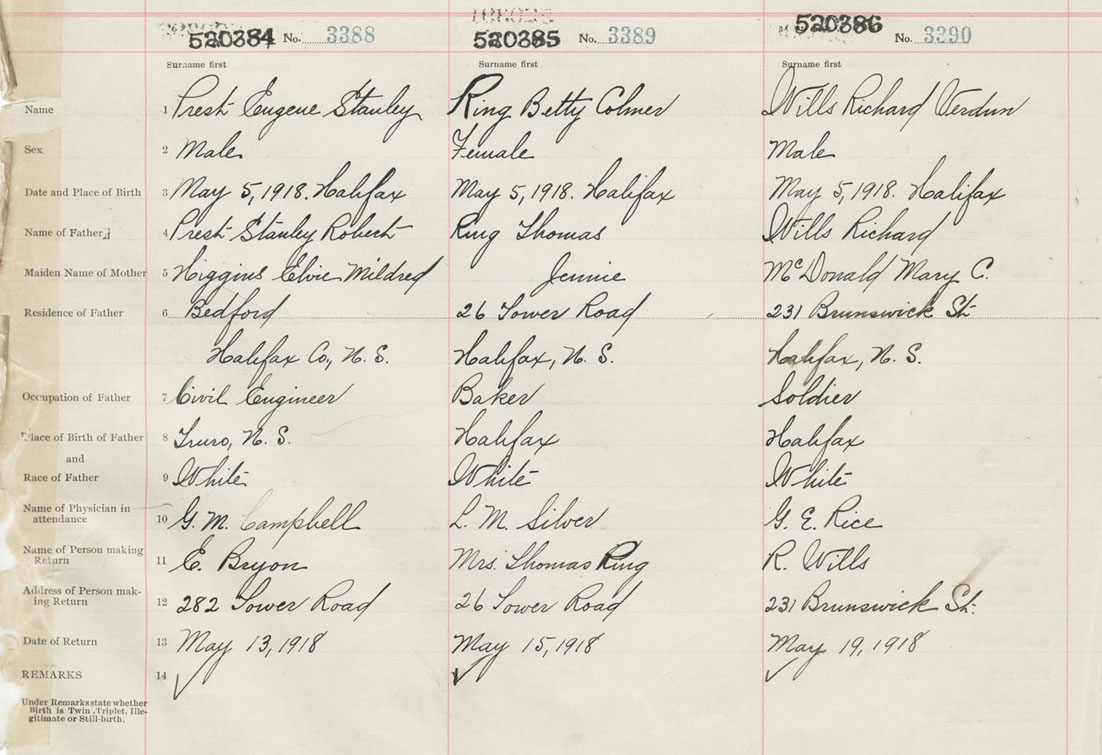 520384 No. 3388 520385 No. 3389 520386 No. 3390
Surname first Surname first Surname first
Name 1 Prest Eugene Stanley Ring Betty Colmer Wills Richard Verdun
Sex 2 Male Female Male
Date and Place of Birth 3 May 5, 1918. Halifax May 5, 1918. Halifax May 5, 1918. Halifax
Name of Father 4 Prest Stanley Robert Ring Thomas Wills Richard
Maiden Name of Mother 5 Higgins Elvie Mildred Jennie McDonald Mary C.
Residence of Father 6 Bedford 26 Tower Road 231 Brunswick St.
Halifax Co., N. S. Halifax, N. S. Halifax, N. S.
Occupation of Father 7 Civil Engineer Baker Soldier
Place of Birth of Father 8 Truro, N. S. Halifax Halifax
and
Race of Father 9 White White White
Name of Physician in
attendance 10 G. M. Campbell L. M. Silver G. E. Rice
Name of Person making
Return 11 E. Bryon Mrs. Thomas Ring R. Wills
Address of Person mak-
ing Return 12 282 Tower Road 26 Tower Road 231 Brunswick St.
Date of Return 13 May 13, 1918 May 15, 1918 May 19, 1918
REMARKS 14
Under Remarks state whether
Birth is Twin, Triplet, Ille-
gitimate or Still-birth.